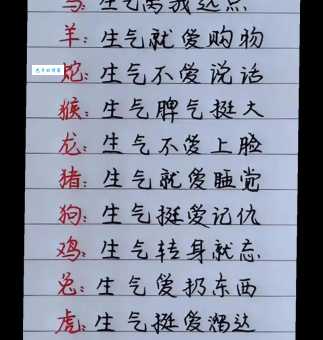 马：生气离我远点
羊：生气就爱购物
蛇：生气不爱说话
猴：生气脾气挺大
龙：生气不爱上脸
猪：生气就爱睡觉
狗：生气挺爱记仇
鸡：生气转身就忘
兔：生气爱扔东西
虎：生气挺爱溜达